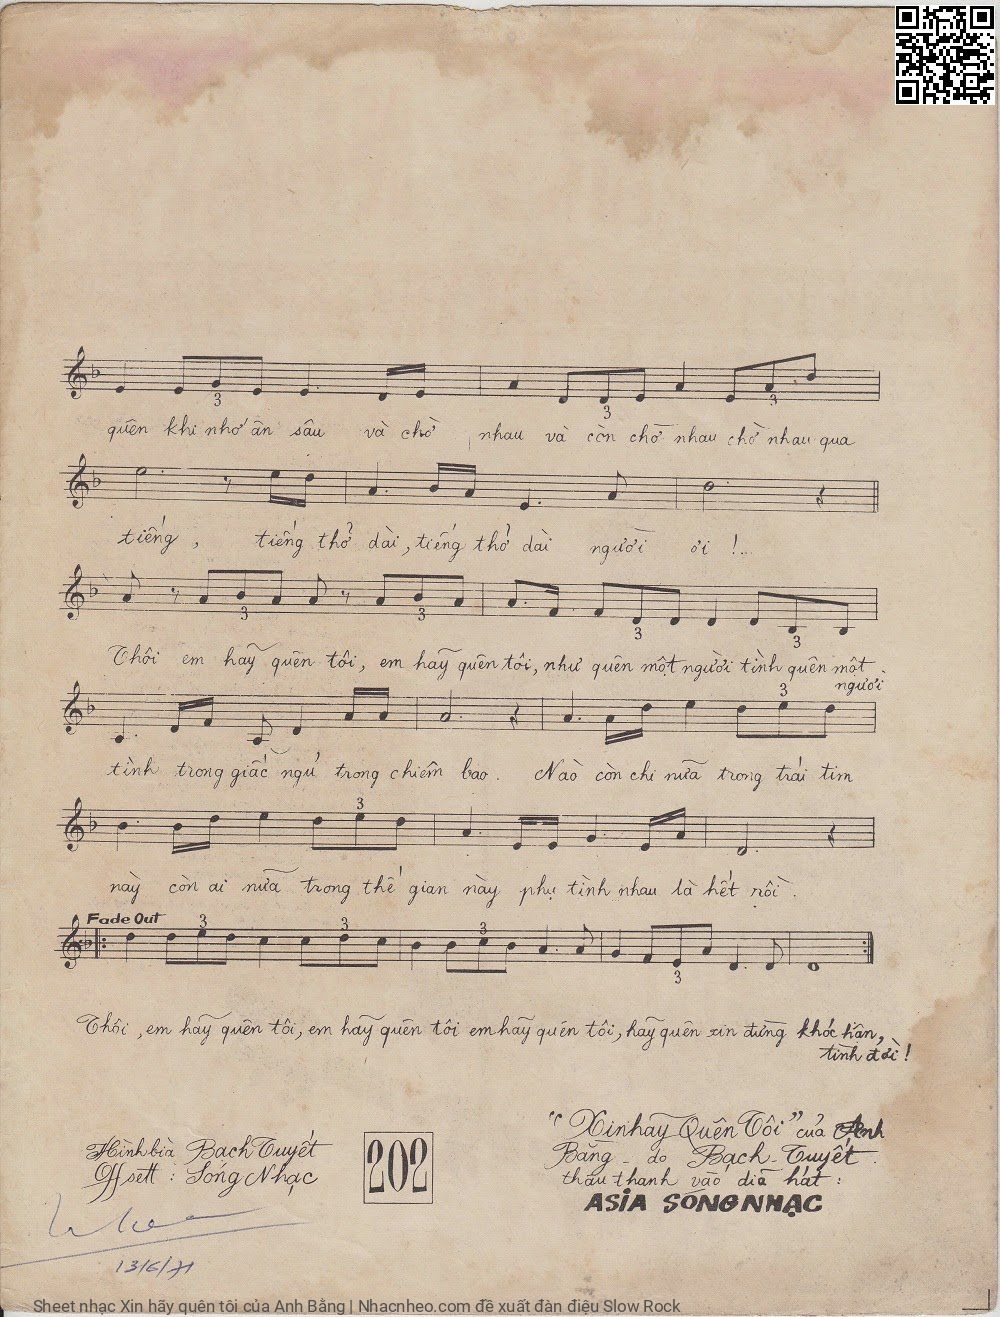 quên khi nhớ ân sâu và chờ nhau và còn chờ nhau chờ nhau qua
tiếng, tiếng thở dài, tiếng thở dài người ơi !..
Thôi em hãy quên tôi, em hãy quên tôi, như quên một người tình quên một
người
tình trong giấc ngủ trong chiêm bao. Nào còn chi nữa trong trái tim
này còn ai nữa trong thế gian này phụ tình nhau là hết rồi.
Fade Out
Thôi, em hãy quên tôi, em hãy quên tôi em hãy quên tôi, hãy quên xin đừng khóc hận,
tình đời !
Hình bìa Bạch Tuyết
Offsett : Sóng Nhạc
202
13/6/71
"Xin hãy Quên Tôi" của Anh
Bằng - do Bạch-Tuyết
thâu thanh vào dĩa hát :
ASIA SÓNG NHẠC
Sheet nhạc Xin hãy quên tôi của Anh Bằng | Nhacnheo.com đề xuất đàn điệu Slow Rock